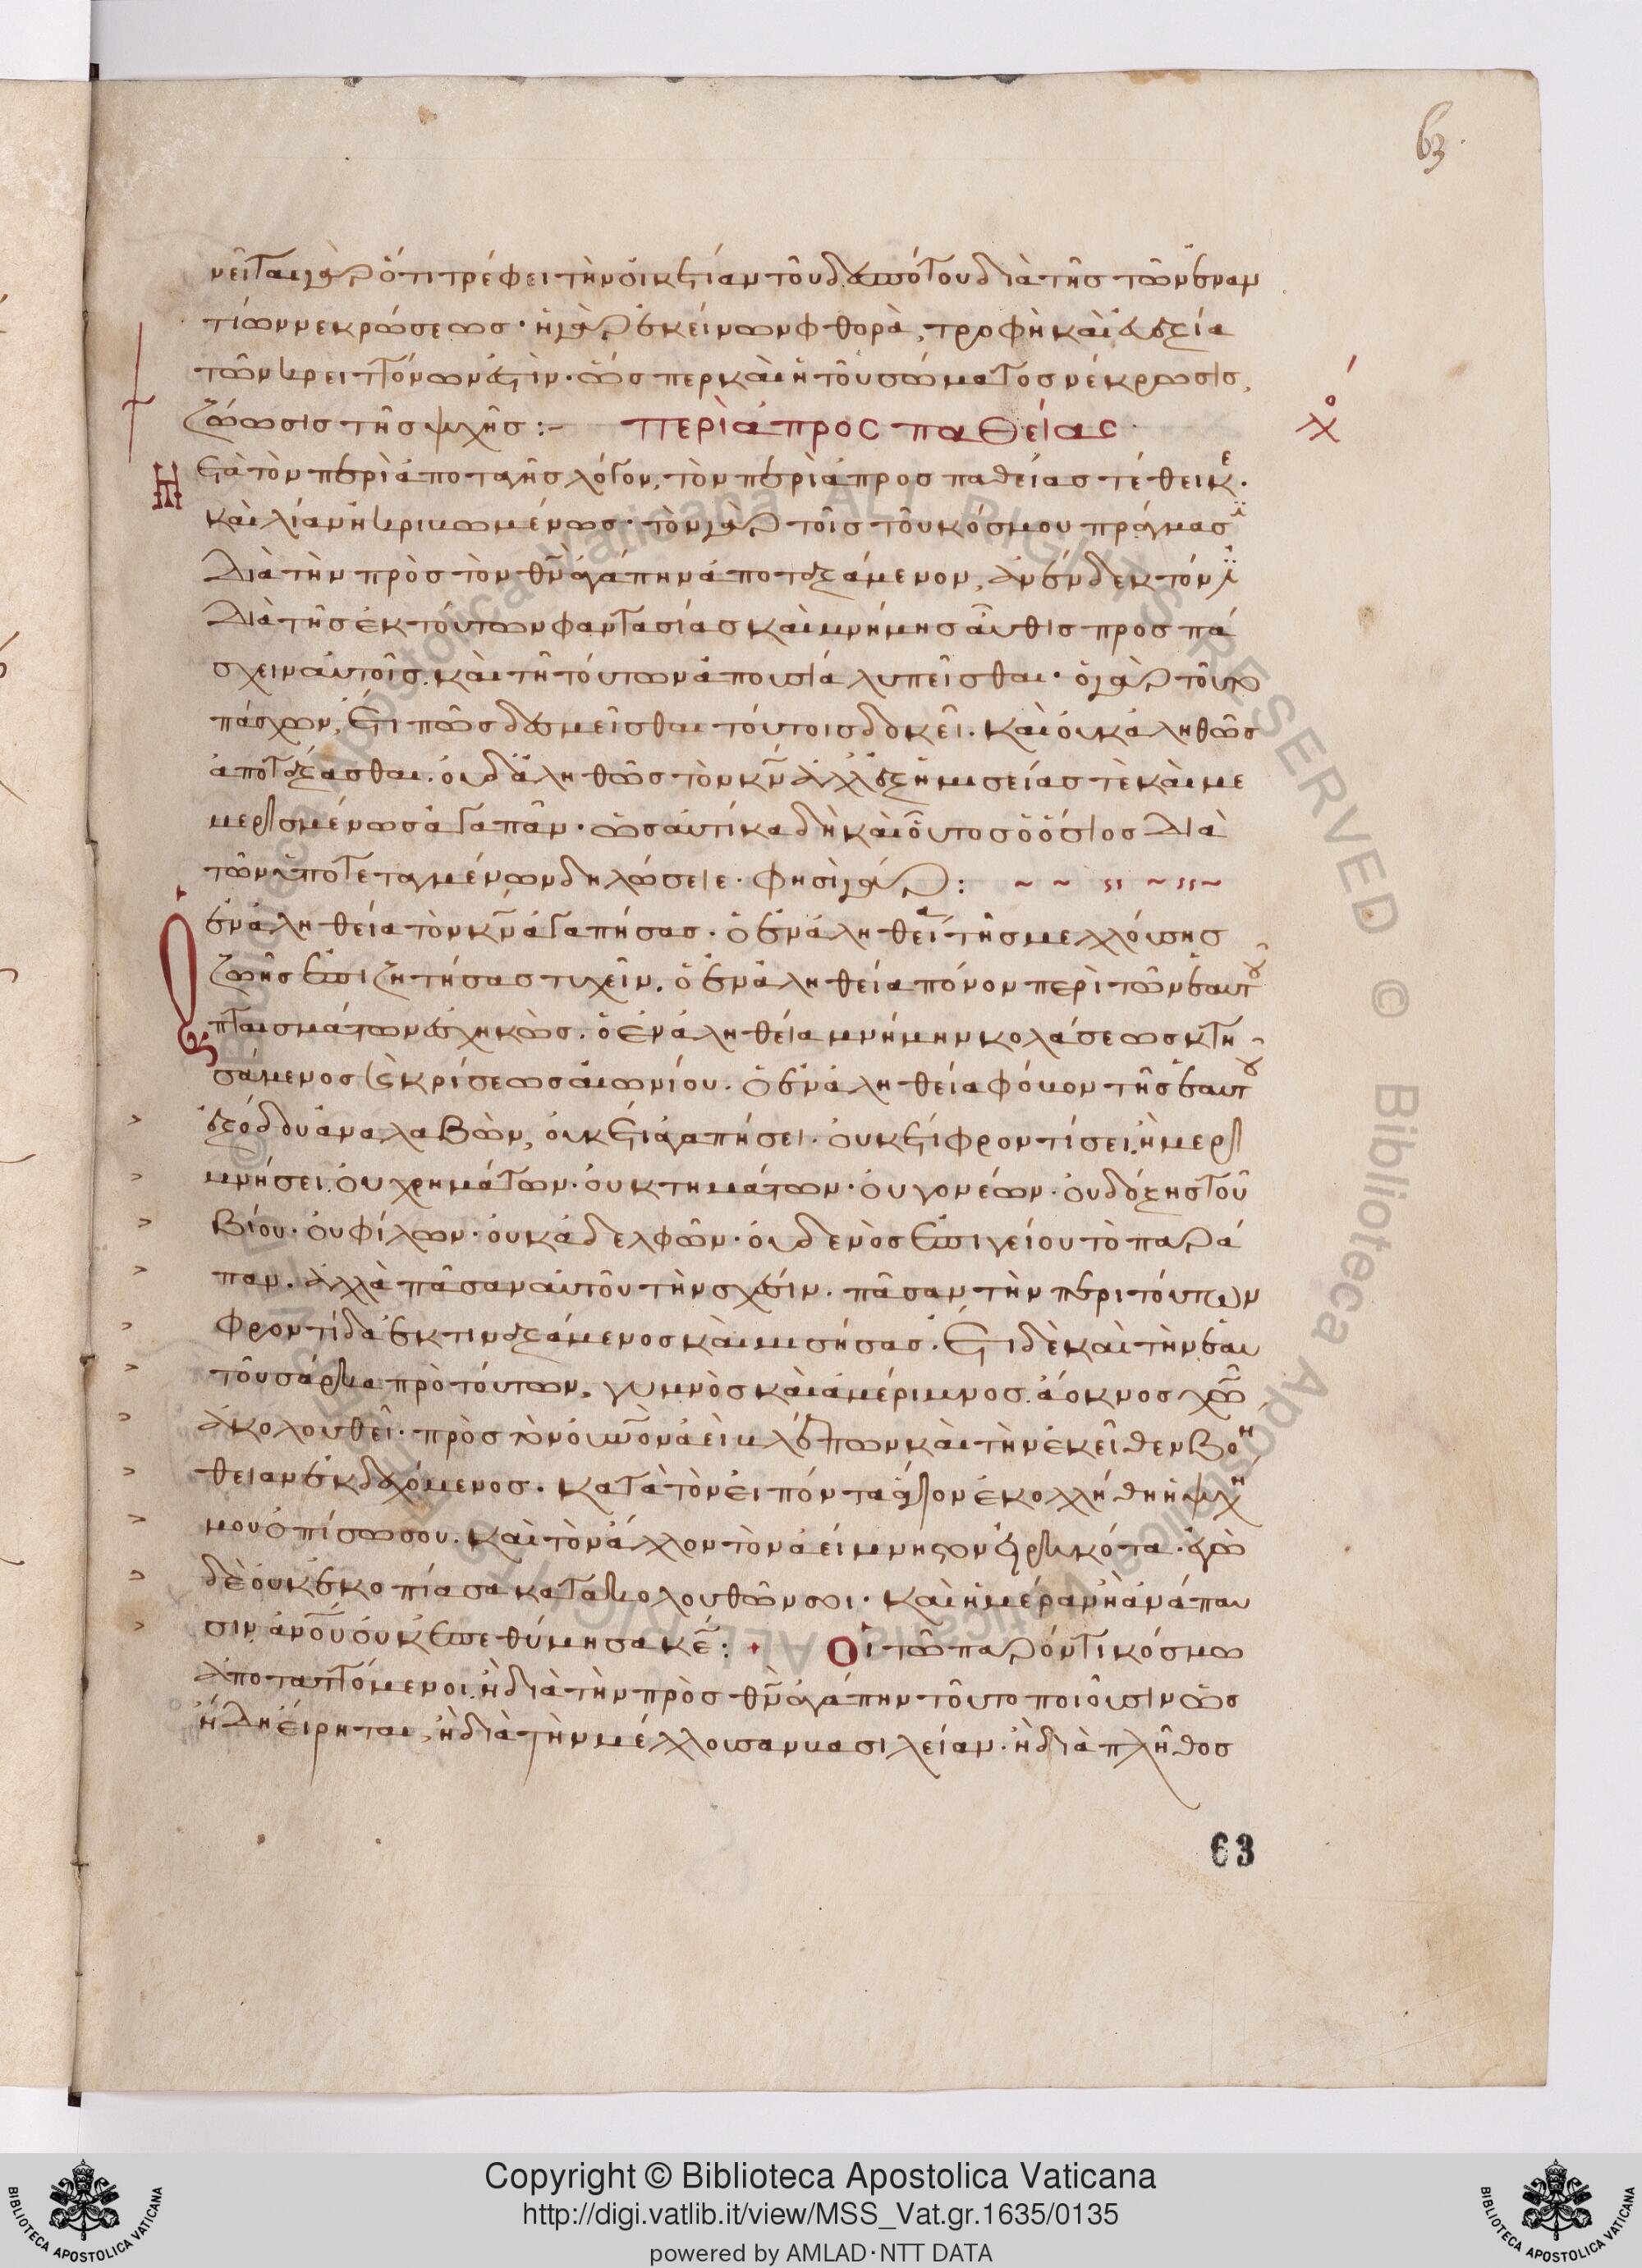 63
νεῖται γὰρ ὅτι τρέφει τὴν οἰκετίαν τοῦ δεσπότου διὰ τῆς τῶν ἐναν
τίων νεκρώσεως· ἡ γὰρ ἐκείνων φθορὰ, τροφὴ καὶ
τῶν κρειττόνων ἐστὶν· ὥσπερ καὶ ἡ τοῦ σώματος νέκρωσις,
ζώωσις τῆς ψυχῆς:– περὶ ἀπροσπαθείας
Μετὰ τὸν περὶ ἀποταγῆς λόγον, τὸν περὶ ἀπροσπαθείας τέθεικε.
καὶ λίαν ἠκριβωμένως· τὸν γὰρ τοῖς τοῦ κόσμου πράγμασι
διὰ τὴν πρὸς τὸν θν ἀγάπην ἀποταξάμενον, ἀνένδεκτόν
διὰ τῆς ἐκ τούτων φαντασίας καὶ μνήμης αὖθις προσπά
σχειν αὐτοῖς. καὶ τῇ τούτων ἀπουσίᾳ λυπεῖσθαι· ὁ γὰρ τοῦτο
πάσχων, ἔτι πως δεσμεῖσθαι τούτοις δοκεῖ. καὶ οὐκ ἀληθῶς
ἀποτάξασθαι. οὐδ' ἀληθῶς τὸν κν ἀλλ' ἐξ ἡμισείας τὲ καὶ με
μερισμένως ἀγαπᾶν· ὡς αὐτίκα δὴ καὶ οὗτος ὁ ὅσιος διὰ
τῶν ὑποτεταγμένων δηλώσειε. φησὶ γάρ:
ὁ ἐν ἀληθεία τὸν κν ἀγαπήσας. ὁ ἐν ἀληθεία τῆς μελλούσης
ζωῆς ἐπιζητήσας τυχεῖν. ὁ ἐν ἀληθεία πόνον περὶ τῶν ἑαυτοῦ
πταισμάτων ἐσχηκὼς. ὁ ἐν ἀληθεία μνήμην κολάσεως κτη
σάμενος καὶ κρίσεως αἰωνίου. ὁ ἐν ἀληθεία φόβον τῆς ἑαυτοῦ
ἐξόδου ἀναλαβὼν, οὐκ ἔτι ἀγαπήσει. οὐκ ἔτι φροντίσει. ἢ μερι
μνήσει. οὐ χρημάτων. οὐ κτημάτων. οὐ γονέων. οὐ δόξης τοῦ
βίου. οὐ φίλων. οὐκ ἀδελφῶν. οὐδενὸς ἐπιγείου τὸ παρά
παν. ἀλλὰ πᾶσαν αὐτοῦ τὴν σχέσιν. πᾶσαν τὴν περὶ τούτων
φροντίδα ἐκτιναξάμενος καὶ μισήσας. ἔτι δὲ καὶ τὴν ἑαυ
τοῦ σάρκα πρὸ τούτων, γυμνὸς καὶ ἀμέριμνος. ἄοκνος χῶ
ἀκολουθεῖ. πρὸς τὸν οὐνον ἀεὶ βλέπων καὶ τὴν ἐκεῖθεν βοή
θειαν ἐκδεχόμενος. κατὰ τὸν εἰπόντα ἅγιον ἐκολλήθη ἡ ψυχή
μου ὀπίσω σου. καὶ τὸν ἄλλον τὸν ἀείμνηστον εἰρηκότα. ἐγὼ
δὲ οὐκ ἐκοπίασα κατακολουθῶν σοι. καὶ ἡμέραν ἢ ἀνάπαυ
σιν ἀνοῦ οὐκ ἐπεθύμησα κε: Οἱ τῶ παρόντι κόσμω
ἀποταττόμενοι. ἢ διὰ τὴν πρὸς θν ἀγάπην τοῦτο ποιοῦσιν ὡς
ἤδη εἴρηται, ἢ διὰ τὴν μέλλουσαν βασιλείαν. ἢ διὰ πλῆθος
63
Copyright © Biblioteca Apostolica Vaticana
http://digi.vatlib.it/view/MSS_Vat.gr.1635/0135
powered by AMLAD·NTT DATA
BIBLIOTECA APOSTOLICA VATICANA
BIBLIOTECA APOSTOLICA VATICANA